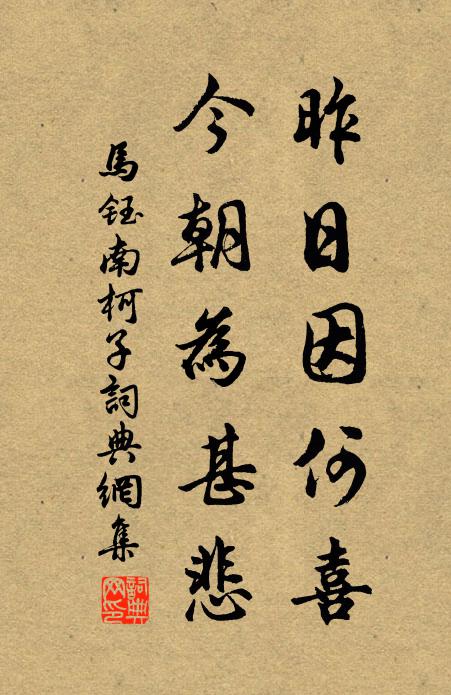 昨日因何喜
今朝為甚悲
馬鈺南柯子詞典網集
詞典
网印